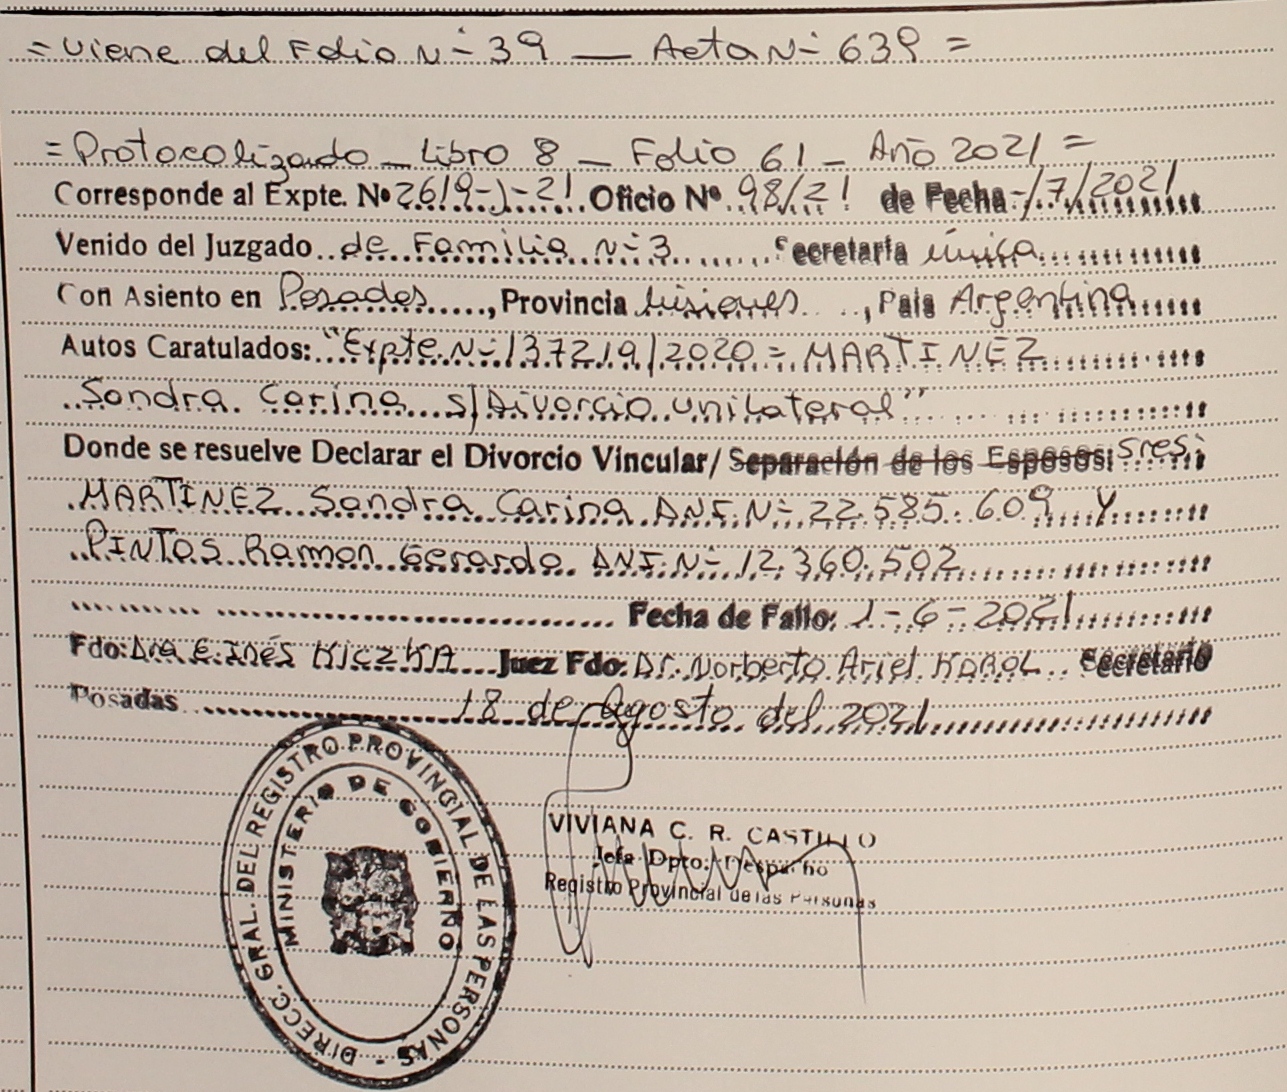 = Viene del Folio N° 39 — Acta N° 639 =
= Protocolizado - Libro 8 - Folio 61 - Año 2021 =
Corresponde al Expte. Nº 2619-J-21. Oficio Nº 98/21 de Fecha -/7/2021
Venido del Juzgado de Familia N° 3 Secretaría única
Con Asiento en Posadas, Provincia Misiones, País Argentina
Autos Caratulados: "Expte. N° 137219/2020 = MARTINEZ
Sandra Carina s/Divorcio unilateral"
Donde se resuelve Declarar el Divorcio Vincular/ Separación de los Esposos: Sres:
MARTINEZ Sandra Carina DNI. N° 22.585.609 y
PINTOS Ramon Gerardo DNI. N° 12.360.502
Fecha de Fallo: 1-6-2021
Fdo: Dra E. Inés KICZKA Juez Fdo: Dr. Norberto Ariel KOROL Secretario
Posadas 18 de Agosto del 2021
DIRECC. GRAL. DEL REGISTRO PROVINCIAL DE LAS PERSONAS -
MINISTERIO DE GOBIERNO
VIVIANA C. R. CASTILLO
Jefa Dpto. Despacho
Registro Provincial de las Personas